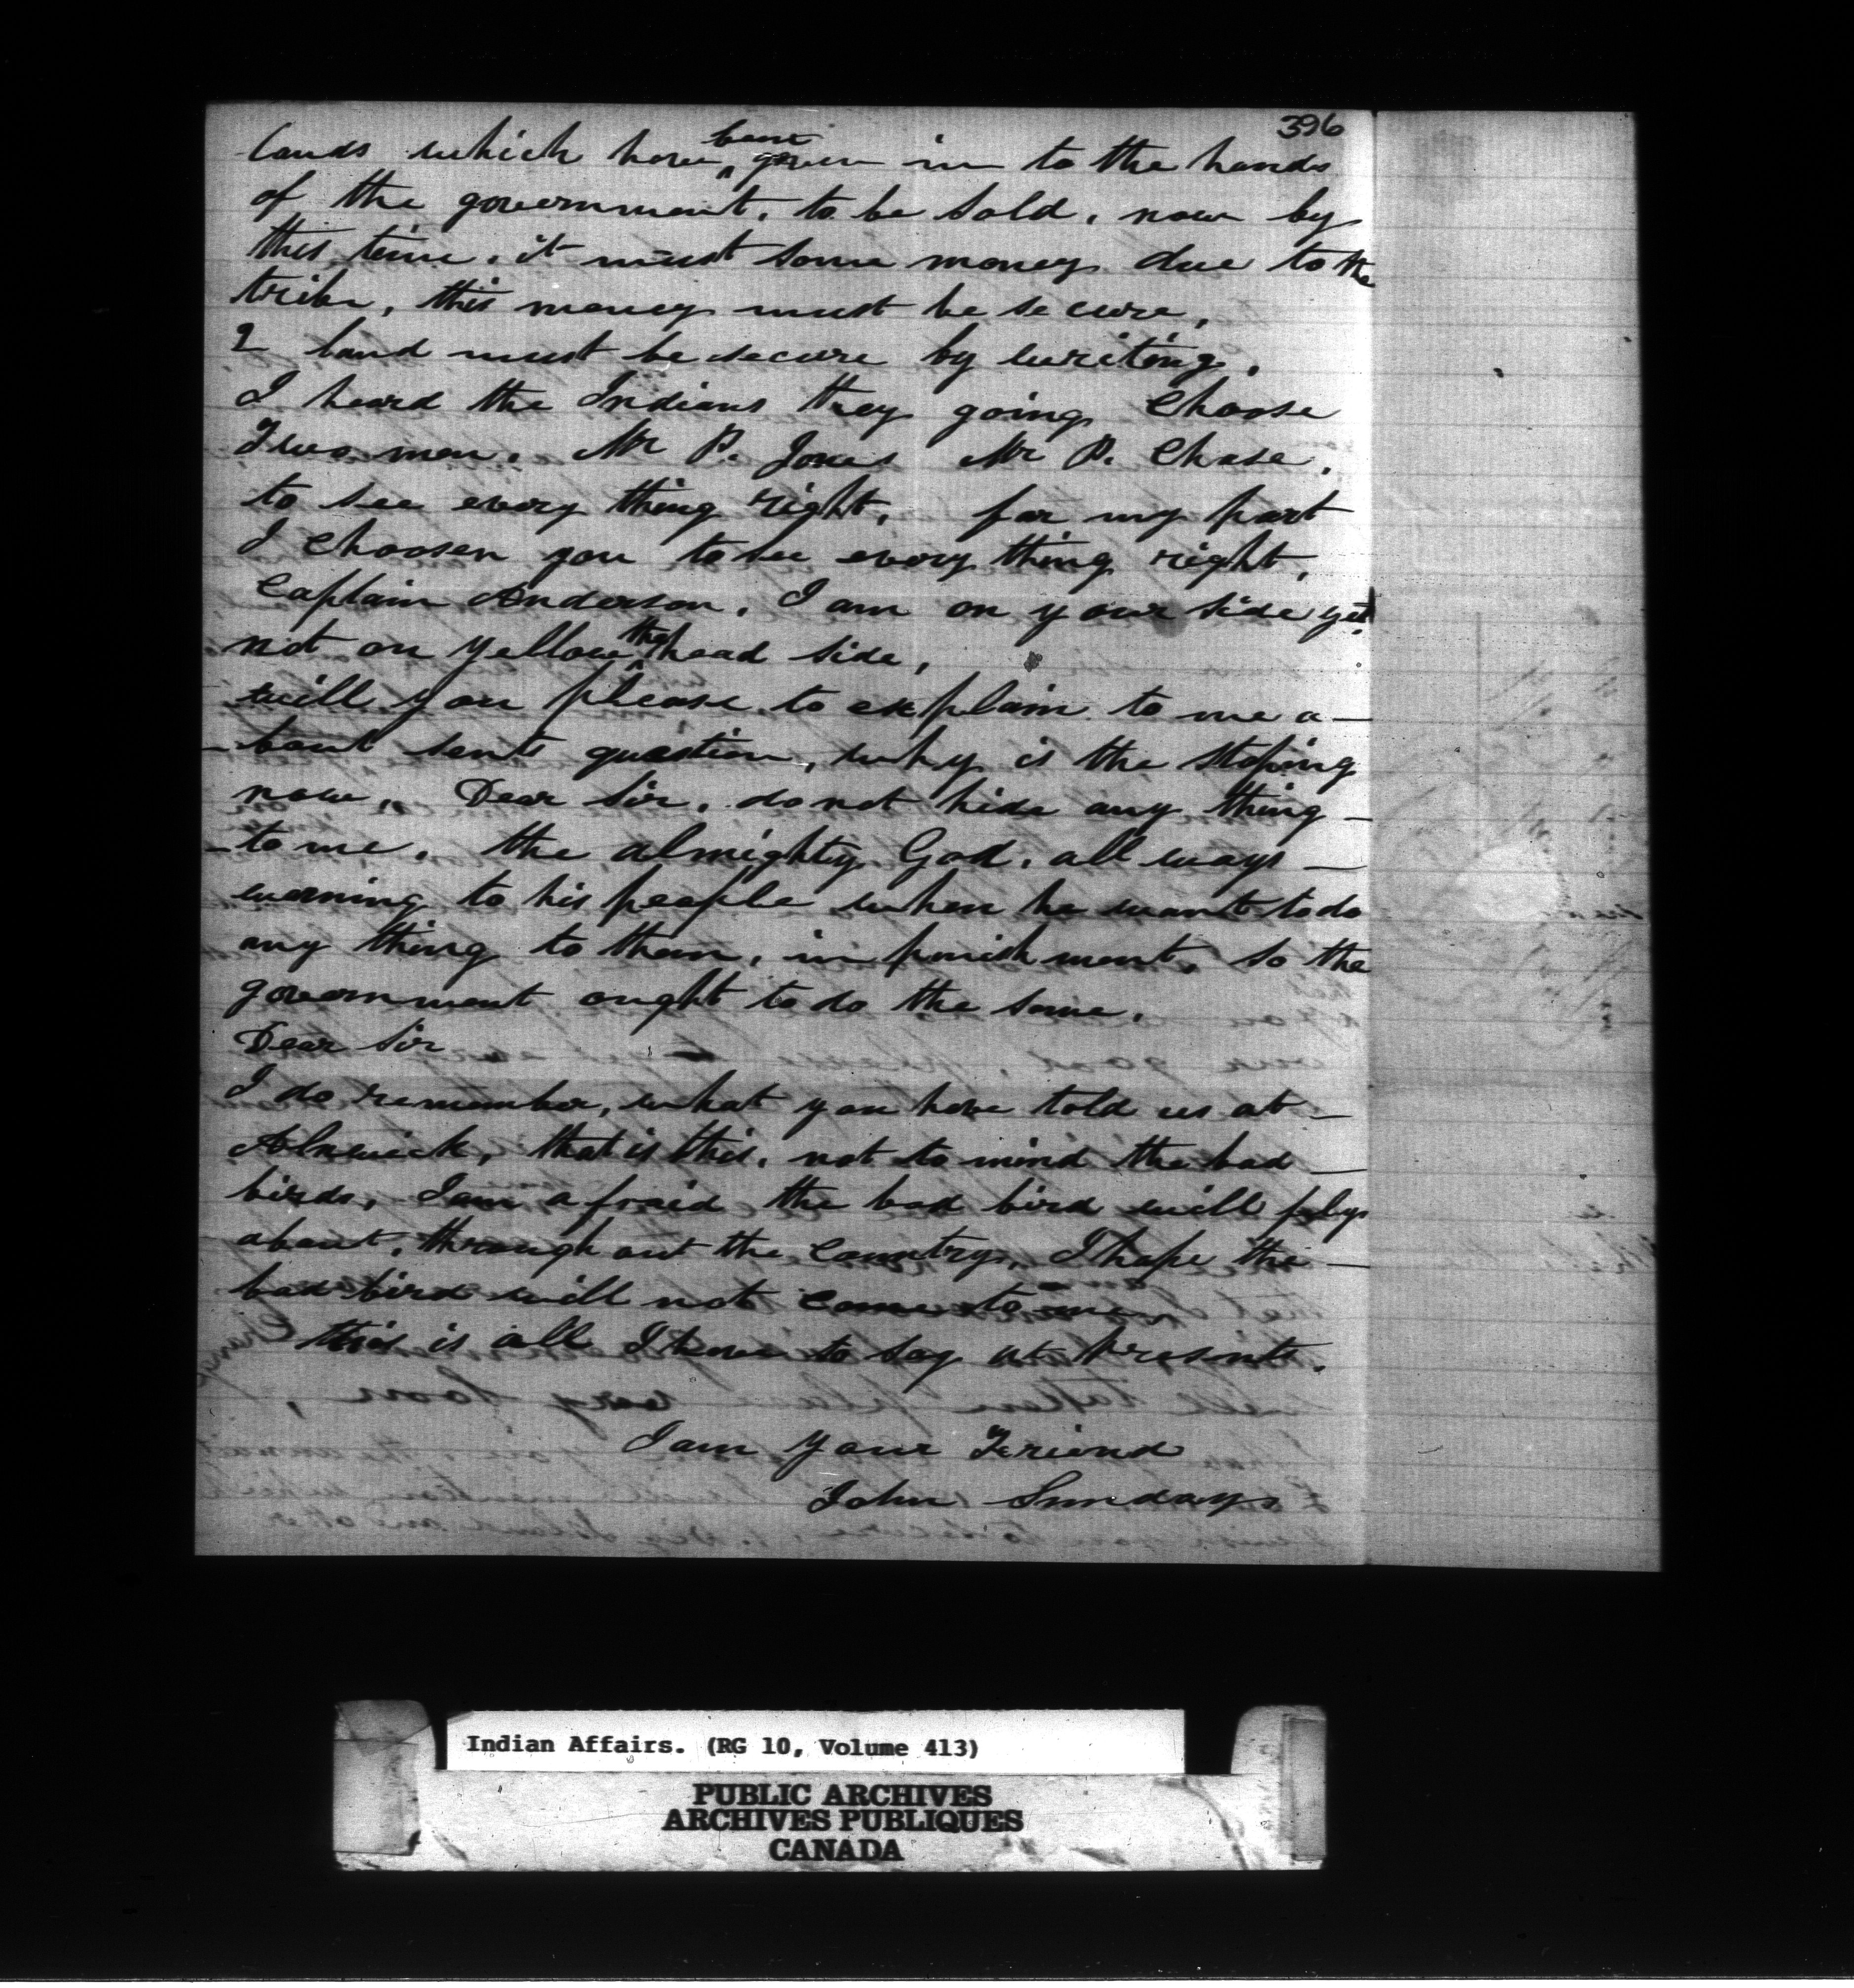 396
lands which have been given in to the hands
of the government, to be sold, now by
this time, it must some money due to the
tribe, this money must be se cure,
2 land must be secure by writing,
I heard the Indians they going Choose
Two men, Mr P. Jones Mr P. Chase,
to see every thing right, for my part
I Choosen you to see every thing right,
Captain Anderson, I am on your side yet,
not on yellow the head side,
will you please to explain to me a-
-bout question, why is the stoping
now, Dear Sir, do not hide any thing-
-to me, the almighty God, all ways-
warning to his people when he want to do
any thing to them, in punish ment, so the
government ought to do the same.
Dear Sir
I do remember, what you have told us at-
Alnwick, that is this, not to mind the bad-
birds, I am a fraid the bad bird will
about, through out the Country, I hope the-
bad bird will not Come to me,
this is all I have to say at Present.
I am your Friend
John Sunday
Indian Affairs. (RG 10, Volume 413)
PUBLIC ARCHIVES
ARCHIVES PUBLIQUES
CANADA